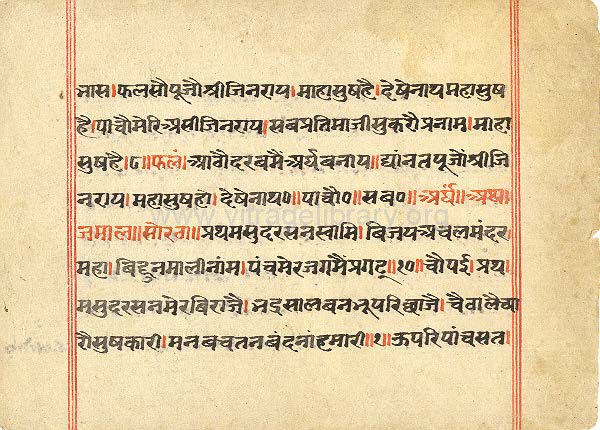 नास।फलसौपूजौश्रीजिनराय।माहासुषहै।देषेनाथमहासुष
है।पाचौमेरिअसीजिनराय।सबप्रतिमाजीसुकरौप्रनाम।माहा
सुषहै।८॥फलं॥आठौदरबमैंअर्घबनाय॥द्यांनतपूजौंश्रीजि
नराय।महासुषहो।देषेनाथ०॥पाचौ०॥सब०॥अर्घ॥अथ
जमाल॥सोरठा॥प्रथमसुदरसनस्वामि।बिजयअचलमंदर
महा।बिद्दुनमालीनांम।पंचमेरजगमैंप्रगट॥१०॥चौपई।प्रथ
मसुदरसनमेरबिराजै।भद्रसालबनभूपरिछाजै।चैताले
रौसुषकारी।मनबचतनबंदनांहमारी॥१॥ऊपरिपांचसत।
www.vitragelibrary.org